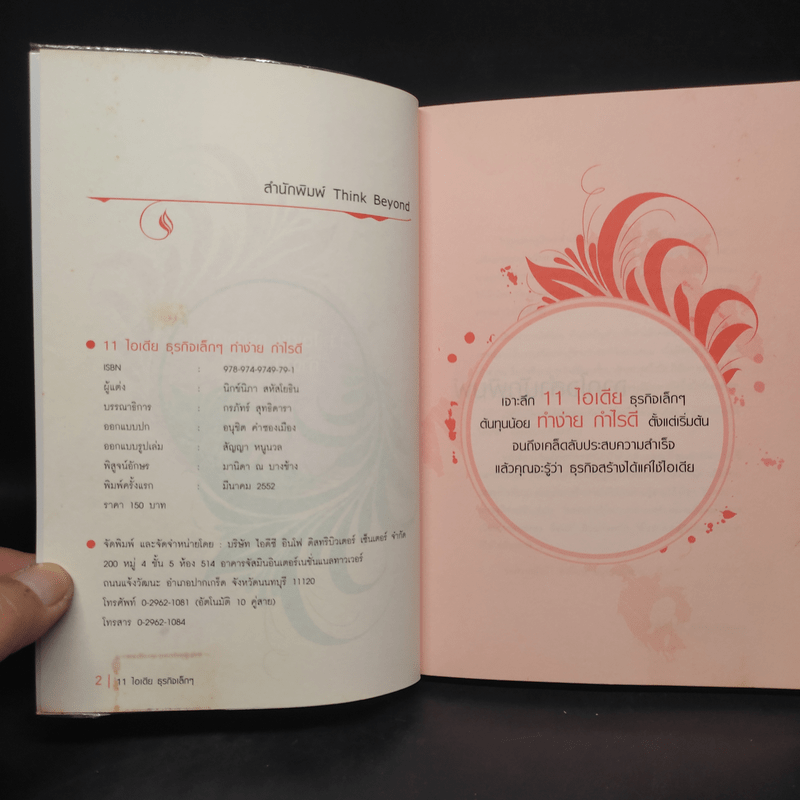 สำนักพิมพ์ Think Beyond
11 ไอเดีย ธุรกิจเล็กๆ ทำง่าย กำไรดี
ISBN : 978-974-9749-79-1
ผู้แต่ง : นิกข์นิภา สหัสโยธิน
บรรณาธิการ : กรภัทร์ สุทธิดารา
ออกแบบปก : อนุชิต คำซองเมือง
ออกแบบรูปเล่ม : สัญญา หนูนวล
พิสูจน์อักษร : มานิตา ณ บางช้าง
พิมพ์ครั้งแรก : มีนาคม 2552
ราคา 150 บาท
จัดพิมพ์ และจัดจำหน่ายโดย : บริษัท ไอดีซี อินโฟ ดิสทริบิวเตอร์ เซ็นเตอร์ จำกัด
200 หมู่ 4 ชั้น 5 ห้อง 514 อาคารจัสมินอินเตอร์เนชั่นแนลทาวเวอร์
ถนนแจ้งวัฒนะ อำเภอปากเกร็ด จังหวัดนนทบุรี 11120
โทรศัพท์ 0-2962-1081 (อัตโนมัติ 10 คู่สาย)
โทรสาร 0-2962-1084
2 | 11 ไอเดีย ธุรกิจเล็กๆ
เจาะลึก 11 ไอเดีย ธุรกิจเล็กๆ
ต้นทุนน้อย ทำง่าย กำไรดี ตั้งแต่เริ่มต้น
จนถึงเคล็ดลับประสบความสำเร็จ
แล้วคุณจะรู้ว่า ธุรกิจสร้างได้แค่ใช้ไอเดีย